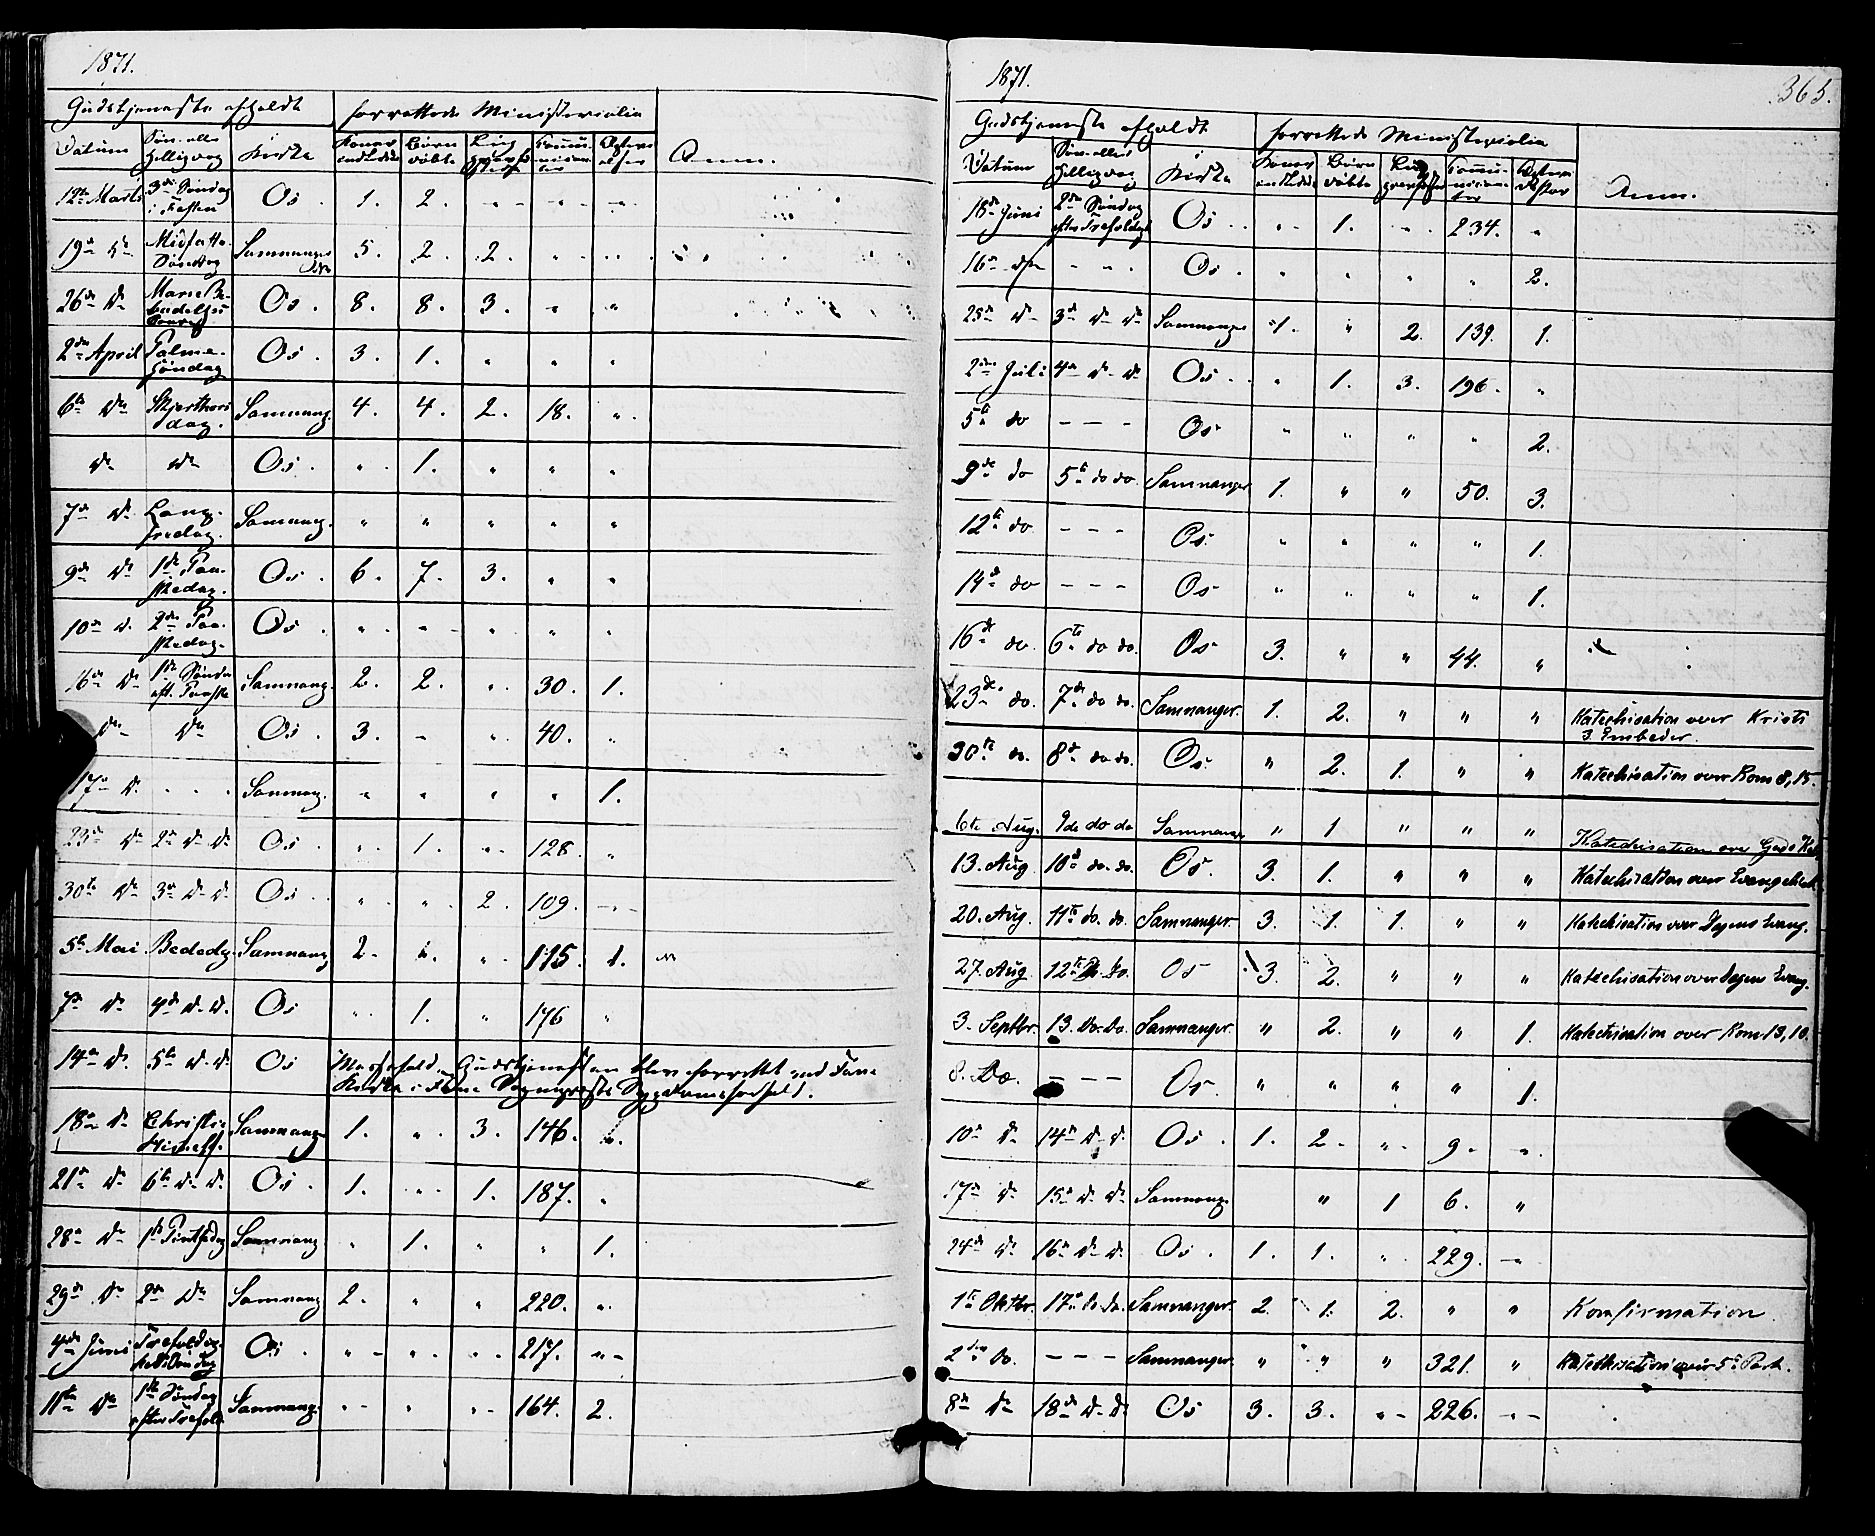 1871.
Gudstjeneste afholdt forrettede Ministerialia
Datum Søn- eller Helligdag Kirke Koner indledte Børn døbte Lig Communicanter Anm.
12te Marts 3die Søndag i Fasten Os. 1. 2. " " "
19de do Midfaste Søndag Samnanger 5. 2. 2. " "
26de do Mariæ Bebudelses Os. 8. 8. 3. " "
2den April Palme Søndag Os. 3. 1. " " "
6te do Skjærthorsdag. Samnang. 4. 4. 2. 18. "
do do Os. " 1. " " "
7de do Langfredag. Samnang. " " " " "
9de do 1ste Paaskedag. Os. 6. 7. 3. " "
10de d. 2den Paaskedag. Os. " " " " "
16de do 1ste Søndag eft. Paaske Samnang. 2. 2. " 30. 1.
do do Os. 3. " " 40. "
17de d. " " " Samnang. " " " " 1.
23de do 2den d. d. Os. " 1. " 128. "
30te do 3die d. d. Os. " " 2. 109. "
5te Mai Bededg. Samnang 2. " 115. 1. "
7de do 4de d. d. Os " 1. " 176 "
14de d. 5te d. d. Os Gudstjenesten blev forrettet ved Fane
Kirke i Fane Sognepræsts Sygdomsforfald.
18de do Christi Himelf. Samnang 1. " 3. 146. "
21de do 6te d. d. Os. 1. " 1. 187. "
28de do 1ste Pintsedag Samnang " 1. " " 1.
29de do 2den do Samnang 2. " " 220. "
4de Juni Trefoldigheds Søndag Os. " " " 217. "
11te do 1ste Søndag efter Trefold. Samnang. " " " 164. 2.
1871. 365.
Gudstjeneste afholdt forrettede Ministerialia
Datum Søn- eller Helligdag Kirke Koner indledte Børn døbte Lig Communicanter Anm.
18de Juni 2den Søndag efter Trefoldigh Os " 1. " 234. "
16de do - - - Os. " " " " 2.
25de do 3die do do Samnanger 1. " 2. 139. 1.
2den Juli 4de d. do Os. " 1. 3. 196. "
5te do - - - Os " " " " 2.
9de do 5te do do. Samnanger 1. " " 50. 3.
12te do - - - Os. " " " " 1.
14de do - - - Os " " " " 1.
16de do. 6te do do. Os 3. " " 44. "
23de do. 7de do do. Samnanger. 1. 2. " " " Katechisation over Kristi
3 Embeder.
30te do. 8de do do. Os. " 2. 1. " " Katechisation over Rom 8,15.
6te Aug. 9de do do Samnanger " 1 " " " Katechisation over Guds
13. Aug 10de do. do. Os. 3. 1. " " " Katechisation over Evangeliet
20. Aug. 11te do. do. Samnanger. 3. 1. 1. " " Katechisation over Dagens Evang.
27. Aug. 12te do. do. Os 3. 2. " " " Katechisation over Dagens Evang.
3. Septbr. 13. do. do. Samnanger. " 2. " " 1. Katechisation over Rom 13,10.
8. Do. - - - Os. " " " " 1.
10de do 14de d. d. Os. 1. 2. " 9. "
17de do 15de d. do Samnang. " 1 6. "
24de do 16de do d. Os. 1. 1. " 229. "
1ste Oktbr. 17de do do. Samnanger. 2. 1. 2. " " Konfirmation.
2den do. - - - Samnanger. " " " 321. " Katechisation over 5te Part.
8de do 18de d. d. Os 3. 3. " 226. "